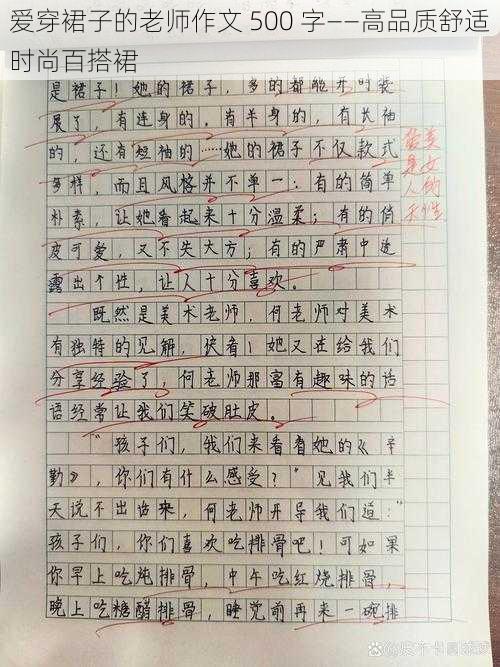 爱穿裙子的老师作文 500 字——高品质舒适
时尚百搭裙
是裙子！她的裙子，多的都能开时装
展了，有连身的，有半身的，有长袖
的，还有短袖的……她的裙子不仅款式
多样，而且风格并不单一：有的简单
朴素，让她看起来十分温柔；有的俏
皮可爱，又不失大方；有的严肃中透
露出个性，让人十分喜欢。
爱美
是女
人的
天性
既然是美术老师，何老师对美术
有独特的见解，快看！她又在给我们
分享经验了，何老师那富有趣味的话
语经常让我们笑破肚皮。
“孩子们，我们来看看她的《辛
勤》，你们有什么感受？”见我们半
天说不出话来，何老师开导我们道：“
孩子们，你们喜欢吃排骨吧！可如果
你早上吃炖排骨，中午吃红烧排骨，
晚上吃糖醋排骨，睡觉前再来一碗排